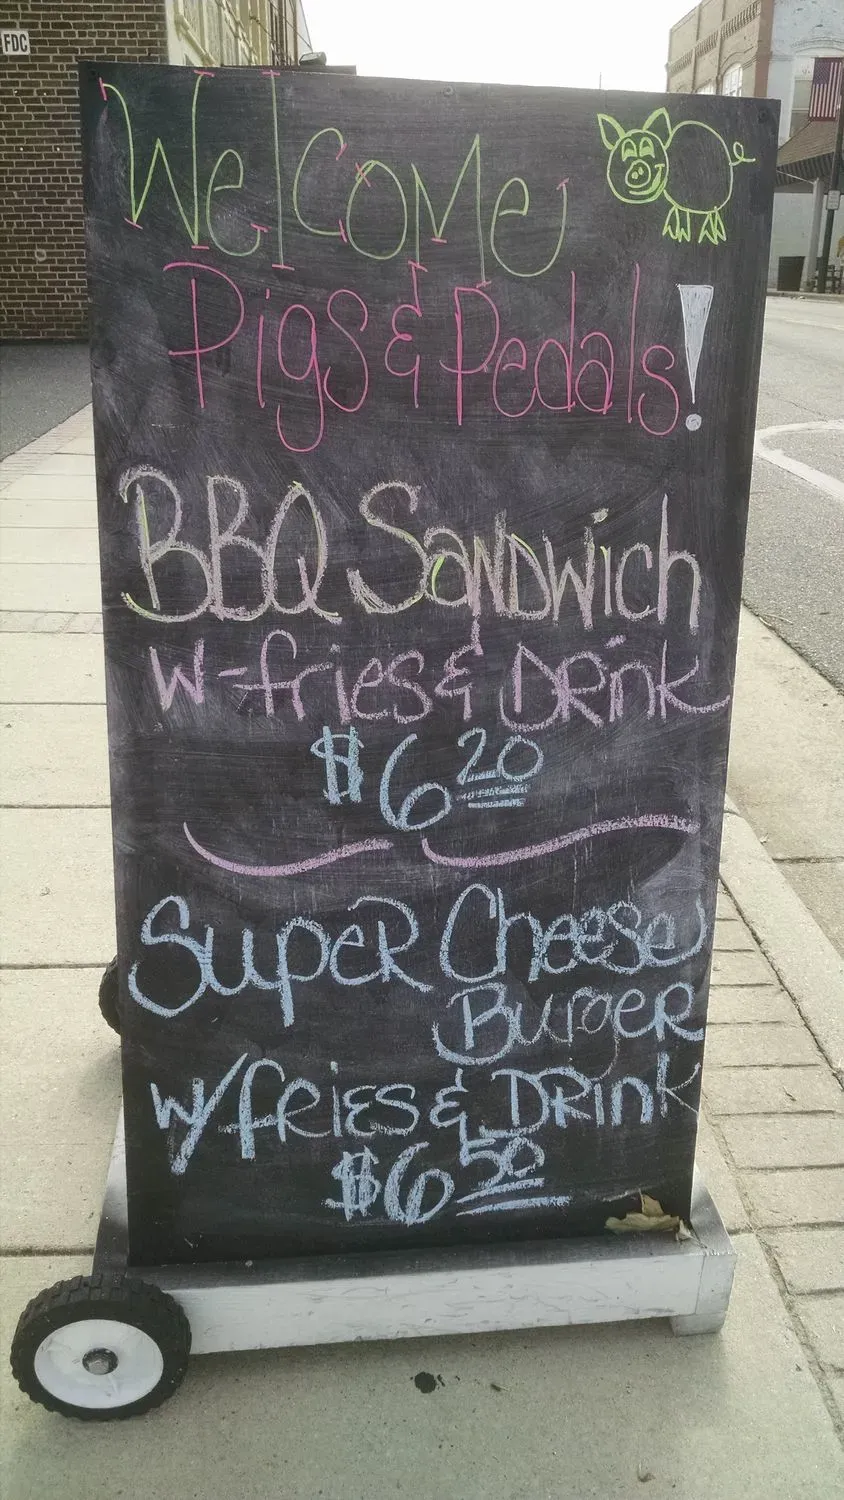 FDC
Welcome
Pigs & Pedals!
BBQ Sandwich
w-fries & Drink
$6 20
Super Cheese
Burger
w/fries & Drink
$6 50